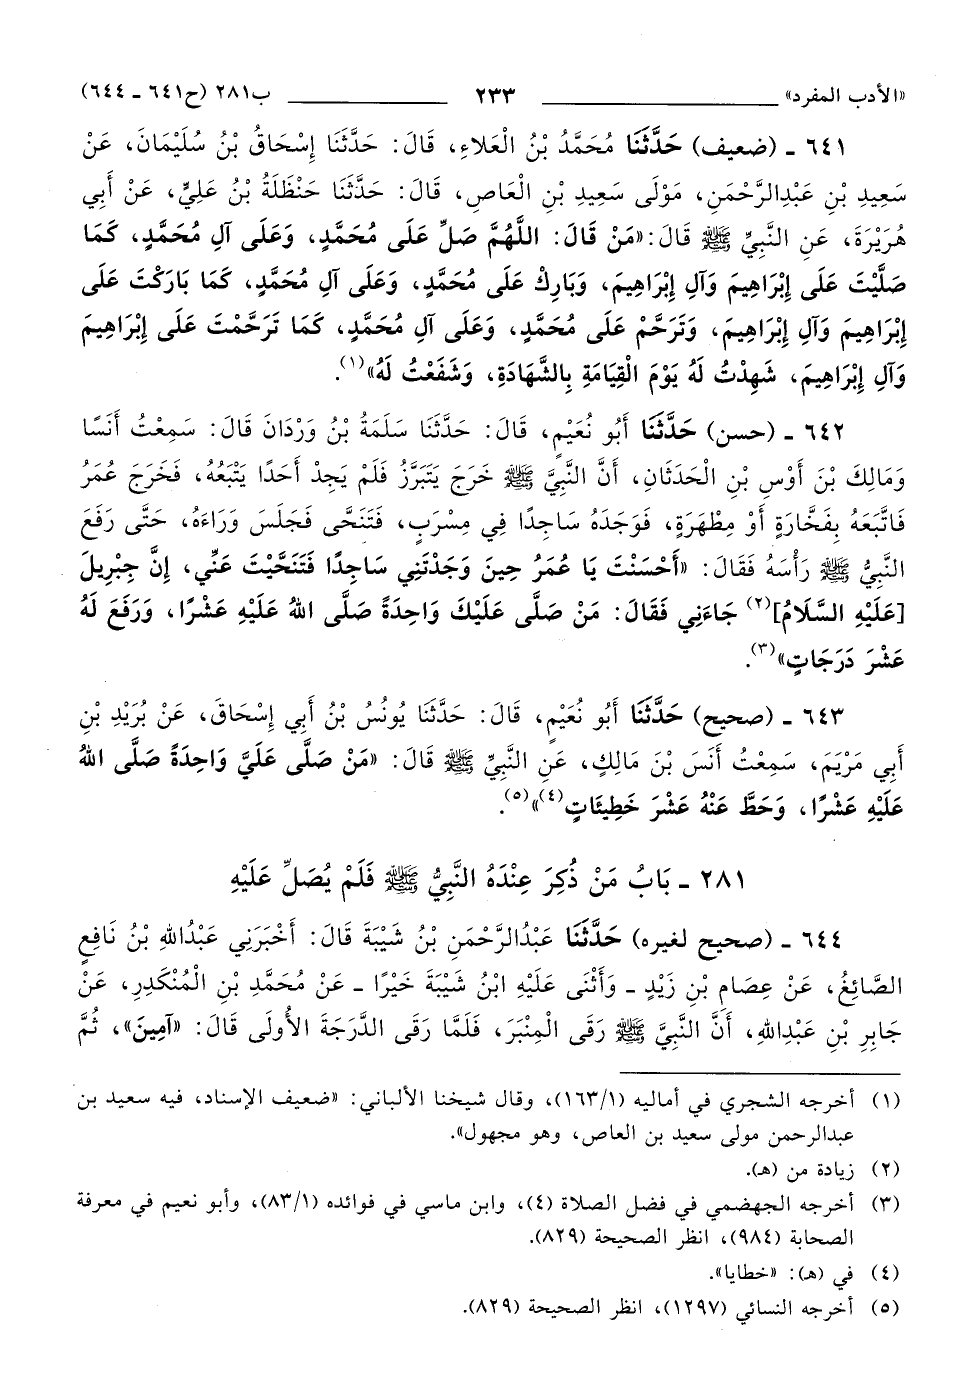 «الأدب المفرد» ٢٣٣ ب٢٨١ (ح٦٤١ ـ ٦٤٤)
٦٤١ ـ (ضعيف) حَدَّثَنَا مُحَمَّدُ بْنُ الْعَلاءِ، قَالَ: حَدَّثَنَا إِسْحَاقُ بْنُ سُلَيْمَانَ، عَنْ
سَعِيدِ بْنِ عَبْدِالرَّحْمَنِ، مَوْلَى سَعِيدِ بْنِ الْعَاصِ، قَالَ: حَدَّثَنَا حَنْظَلَةُ بْنُ عَلِيٍّ، عَنْ أَبِي
هُرَيْرَةَ، عَنِ النَّبِيِّ ﷺ قَالَ: «مَنْ قَالَ: اللَّهُمَّ صَلِّ عَلَى مُحَمَّدٍ، وَعَلَى آلِ مُحَمَّدٍ، كَمَا
صَلَّيْتَ عَلَى إِبْرَاهِيمَ وَآلِ إِبْرَاهِيمَ، وَبَارِكْ عَلَى مُحَمَّدٍ، وَعَلَى آلِ مُحَمَّدٍ، كَمَا بَارَكْتَ عَلَى
إِبْرَاهِيمَ وَآلِ إِبْرَاهِيمَ، وَتَرَحَّمْ عَلَى مُحَمَّدٍ، وَعَلَى آلِ مُحَمَّدٍ، كَمَا تَرَحَّمْتَ عَلَى إِبْرَاهِيمَ
وَآلِ إِبْرَاهِيمَ، شَهِدْتُ لَهُ يَوْمَ الْقِيَامَةِ بِالشَّهَادَةِ، وَشَفَعْتُ لَهُ»(١).
٦٤٢ ـ (حسن) حَدَّثَنَا أَبُو نُعَيْمٍ، قَالَ: حَدَّثَنَا سَلَمَةُ بْنُ وَرْدَانَ قَالَ: سَمِعْتُ أَنَسًا
وَمَالِكَ بْنَ أَوْسِ بْنِ الْحَدَثَانِ، أَنَّ النَّبِيَّ ﷺ خَرَجَ يَتَبَرَّزُ فَلَمْ يَجِدْ أَحَدًا يَتْبَعُهُ، فَخَرَجَ عُمَرُ
فَاتَّبَعَهُ بِفَخَّارَةٍ أَوْ مِطْهَرَةٍ، فَوَجَدَهُ سَاجِدًا فِي مِسْرَبٍ، فَتَنَحَّى فَجَلَسَ وَرَاءَهُ، حَتَّى رَفَعَ
النَّبِيُّ ﷺ رَأْسَهُ فَقَالَ: «أَحْسَنْتَ يَا عُمَرُ حِينَ وَجَدْتَنِي سَاجِدًا فَتَنَحَّيْتَ عَنِّي، إِنَّ جِبْرِيلَ
[عَلَيْهِ السَّلَامُ](٢) جَاءَنِي فَقَالَ: مَنْ صَلَّى عَلَيْكَ وَاحِدَةً صَلَّى اللهُ عَلَيْهِ عَشْرًا، وَرَفَعَ لَهُ
عَشْرَ دَرَجَاتٍ»(٣).
٦٤٣ ـ (صحيح) حَدَّثَنَا أَبُو نُعَيْمٍ، قَالَ: حَدَّثَنَا يُونُسُ بْنُ أَبِي إِسْحَاقَ، عَنْ بُرَيْدِ بْنِ
أَبِي مَرْيَمَ، سَمِعْتُ أَنَسَ بْنَ مَالِكٍ، عَنِ النَّبِيِّ ﷺ قَالَ: «مَنْ صَلَّى عَلَيَّ وَاحِدَةً صَلَّى اللهُ
عَلَيْهِ عَشْرًا، وَحَطَّ عَنْهُ عَشْرَ خَطِيئَاتٍ(٤)»(٥).
٢٨١ ـ بَابُ مَنْ ذُكِرَ عِنْدَهُ النَّبِيُّ ﷺ فَلَمْ يُصَلِّ عَلَيْهِ
٦٤٤ ـ (صحيح لغيره) حَدَّثَنَا عَبْدُالرَّحْمَنِ بْنُ شَيْبَةَ قَالَ: أَخْبَرَنِي عَبْدُاللهِ بْنُ نَافِعٍ
الصَّائِغُ، عَنْ عِصَامِ بْنِ زَيْدٍ ـ وَأَثْنَى عَلَيْهِ ابْنُ شَيْبَةَ خَيْرًا ـ عَنْ مُحَمَّدِ بْنِ الْمُنْكَدِرِ، عَنْ
جَابِرِ بْنِ عَبْدِاللهِ، أَنَّ النَّبِيَّ ﷺ رَقَى الْمِنْبَرَ، فَلَمَّا رَقَى الدَّرَجَةَ الأُولَى قَالَ: «آمِينَ»، ثُمَّ
(١) أخرجه الشجري في أماليه (١/ ١٦٣)، وقال شيخنا الألباني: «ضعيف الإسناد، فيه سعيد بن
عبدالرحمن مولى سعيد بن العاص، وهو مجهول».
(٢) زيادة من (هـ).
(٣) أخرجه الجهضمي في فضل الصلاة (٤)، وابن ماسي في فوائده (١/ ٨٣)، وأبو نعيم في معرفة
الصحابة (٩٨٤)، انظر الصحيحة (٨٢٩).
(٤) في (هـ): «خطايا».
(٥) أخرجه النسائي (١٢٩٧)، انظر الصحيحة (٨٢٩).